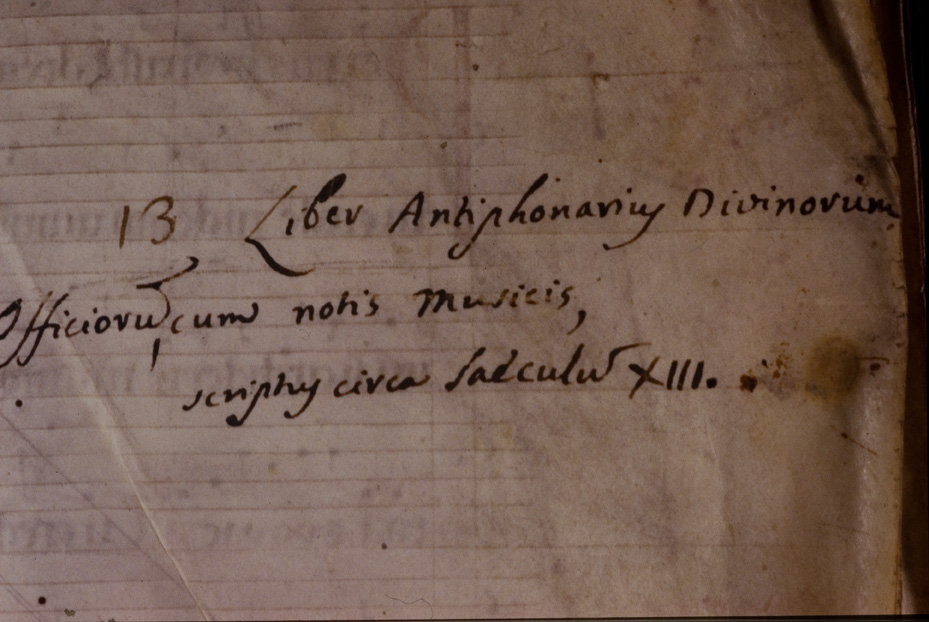 13 Liber Antiphonarius Divinorum
Officiorū, cum notis Musicis,
scriptus circa Saeculū XIII.